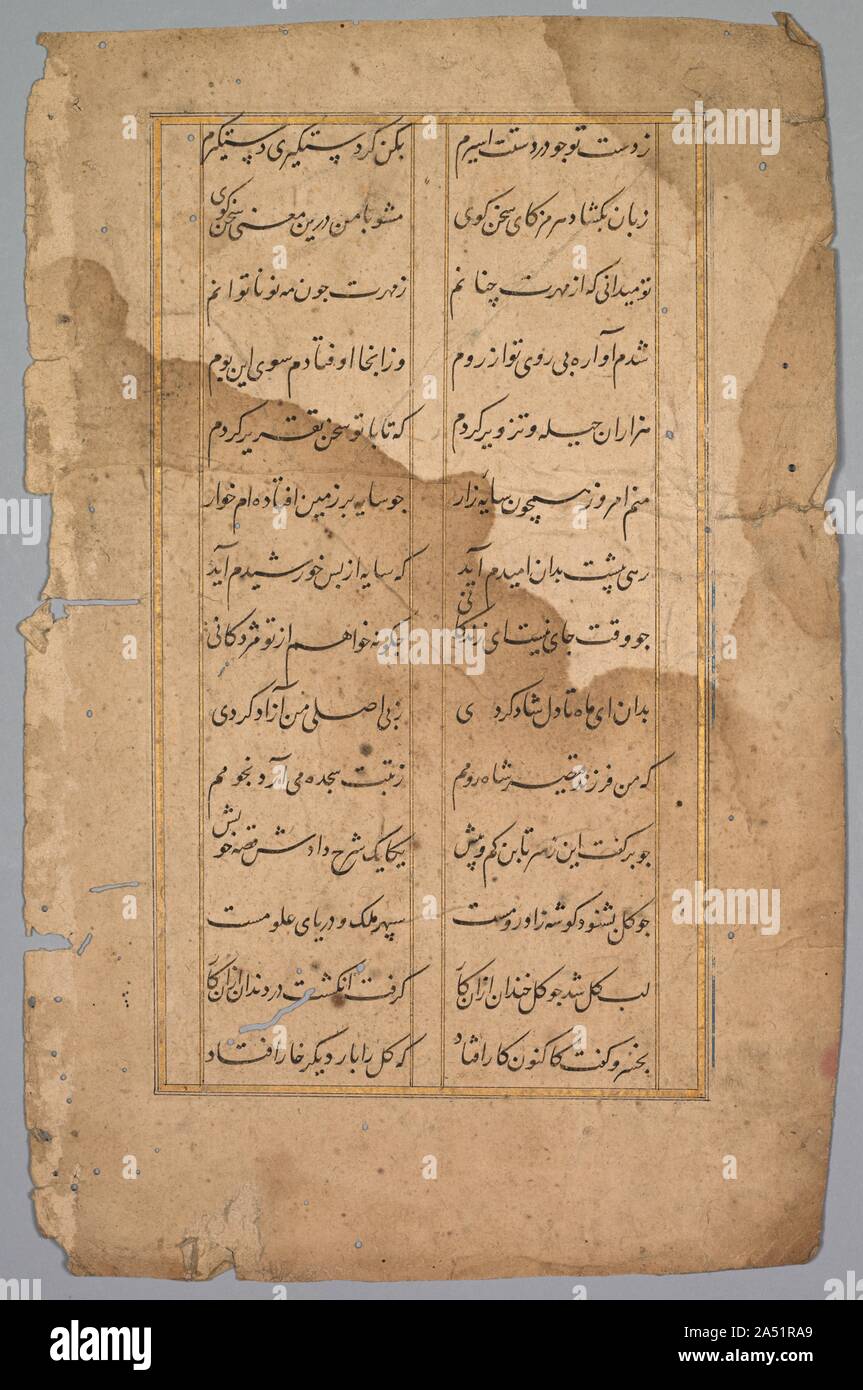 ز دست تو جو در دست اسیرم بکن کرد دستکیری دستکیرم
زبان بکشاد هرمز کای سخن کوی مشو با من درین معنی سخن کوی
تو میدانی که از مهرت چنانم ز مهرت جون مه نو ناتوانم
شدم آواره بی روی تو از روم وز انجا اوفتادم سوی این بوم
هزاران حیله و تزویر کردم که تا با تو سخن تقریر کردم
منم امروز همچون سایه زار جو سایه بر زمین افتاده ام خوار
رهی پیشت بدان امیدم آید که سایه از پس خورشیدم آید
جو وقت جای نیست ای زندکانی جکونه خواهم از تو مژدکانی
بدان ای ماه تا دل شاد کردی ز بی اصلی من آزاد کردی
که من فرزند قیصر شاه رومم ز تبت سجده می آرد نجومم
جو بر کفت این ز سر تا بن کم و بیش یکایک شرح دادش قصه خویش
جو کل بشنود کو شهزاد رومست سپهر ملک و دریای علومست
لب کل شد جو کل خندان ازان کار کرفت انکشت در دندان ازان کار
بخسرو کفت کاکنون کار افتاد که کل را بار دیکر خار افتاد
alamy
a
Image ID: 2A51RA9
www.alamy.com